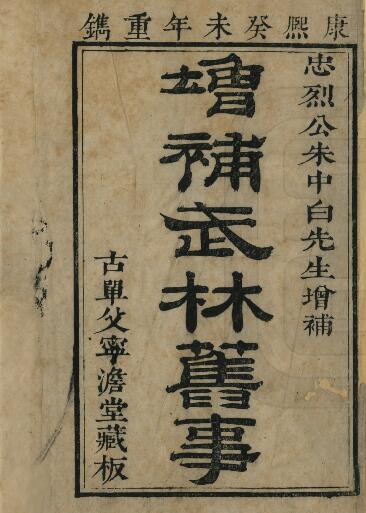 康熙癸未年重鐫
忠烈公朱中白先生增補
增補武林舊事
古單父寧澹堂藏板